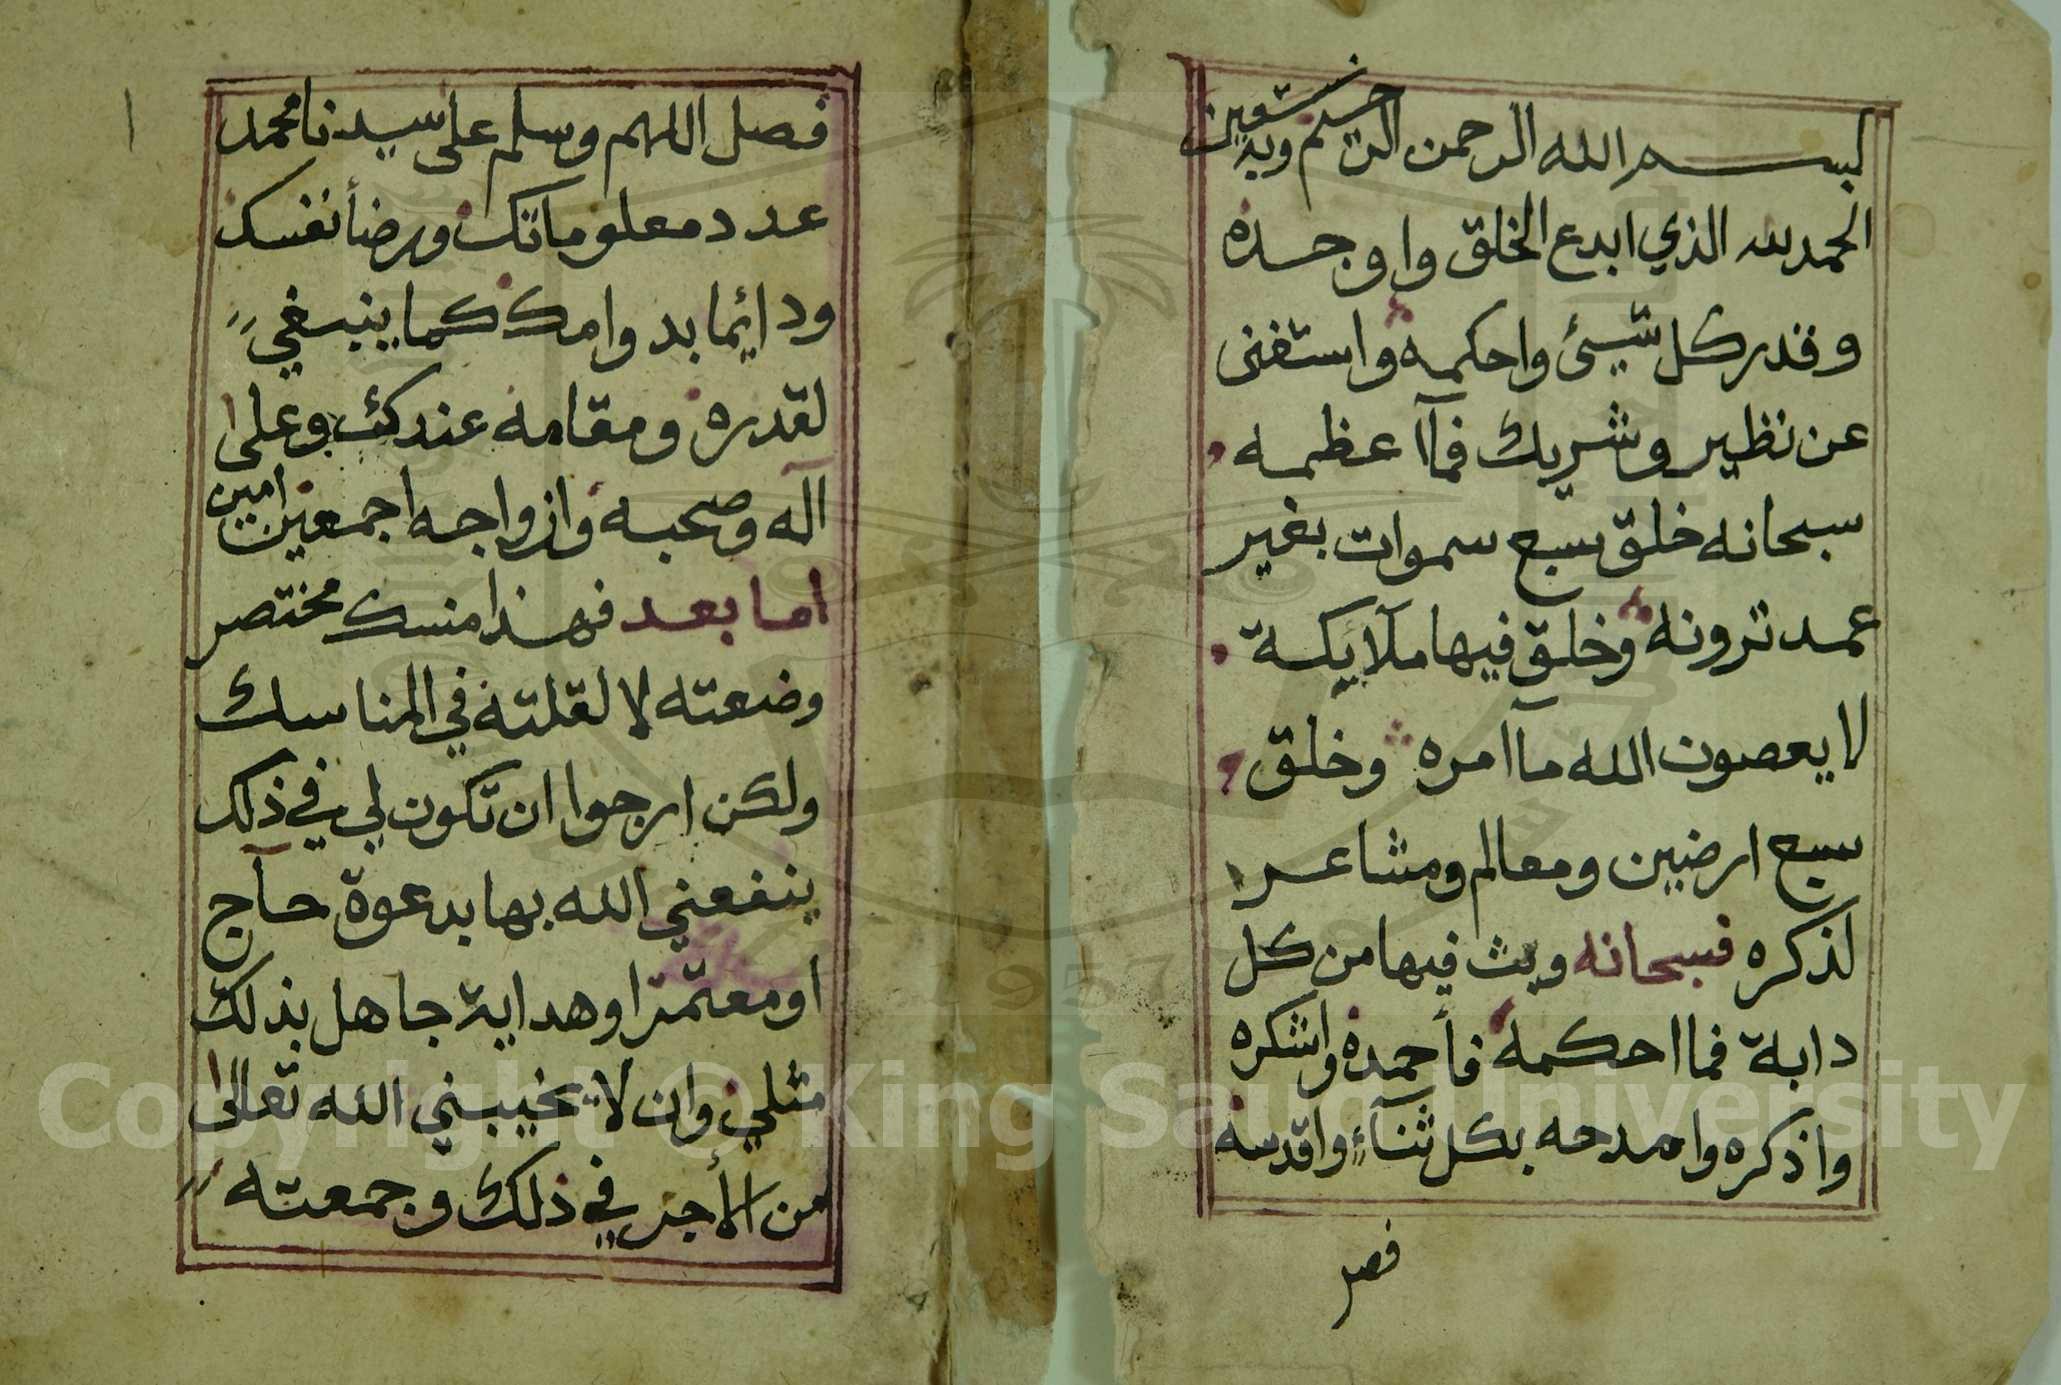 بسم الله الرحمن الرحيم وبه نستعين
الحمد لله الذي ابدع الخلق واوجده
وقدر كل شيئ واحكمه واستغنى
عن نظير وشريك فمآ اعظمه
سبحانه خلق سبع سموات بغير
عمد ترونه وخلق فيها ملآيكة
لا يعصون الله مآ امره وخلق
سبع ارضين ومعالم ومشاعر
لذكره فسبحانه وبث فيها من كل
دابة فما احكمه فأحمده واشكره
واذكره وامدحه بكل ثنآءٍ واقدسه
فصل
١
فصل اللهم وسلم على سيدنا محمد
عدد معلوماتك ورضأ نفسك
ودائما بدوامك كما ينبغي
لقدره ومقامه عندك وعلى
آله وصحبه وازواجه اجمعين امين
اما بعد فهذا منسك مختصر
وضعته لا لقلته في المناسك
ولكن ارجوا ان تكون لي في ذلك
ينفعني الله بها بدعوة حآج
او معتمر او هداية جاهل بذلك
مثلي وان لا يخيبني الله تعالى
من الأجر في ذلك وجمعته
Copyright © King Saud University
1957